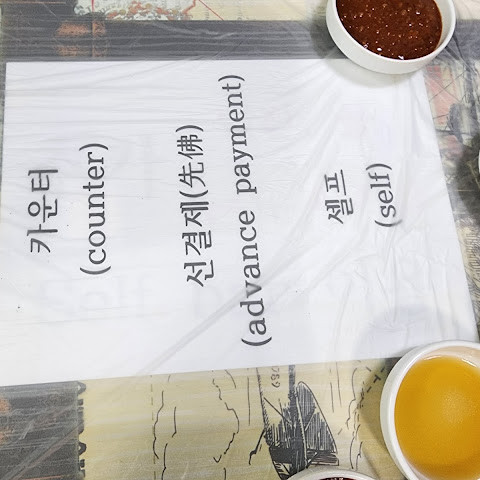 카운터
(counter)
선결제(先佛)
(advance payment)
셀프
(self)